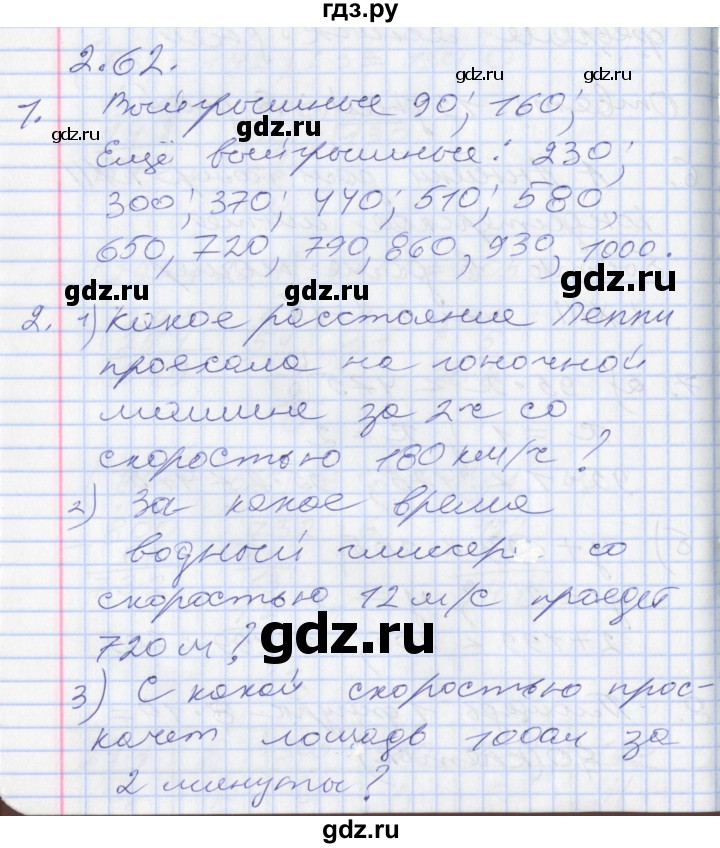 гдз.ру
2.62.
1. Выигрышные 90; 160;
Ещё выигрышные: 230;
300; 370; 440; 510; 580,
650, 720, 790, 860, 930, 1000.
2. 1) Какое расстояние Пеппи
проехала на гоночной
машине за 2ч со
скоростью 180 км/ч?
2) За какое время
водный глиссер со
скоростью 12 м/с проедет
720 м?
3) С какой скоростью прос-
качет лошадь 1000м за
2 минуты?
gdz.ru
gdz.ru
gdz.ru
gdz.ru
gdz.ru
gdz.ru
gdz.ru
gdz.ru
gdz.ru
gdz.ru
gdz.ru